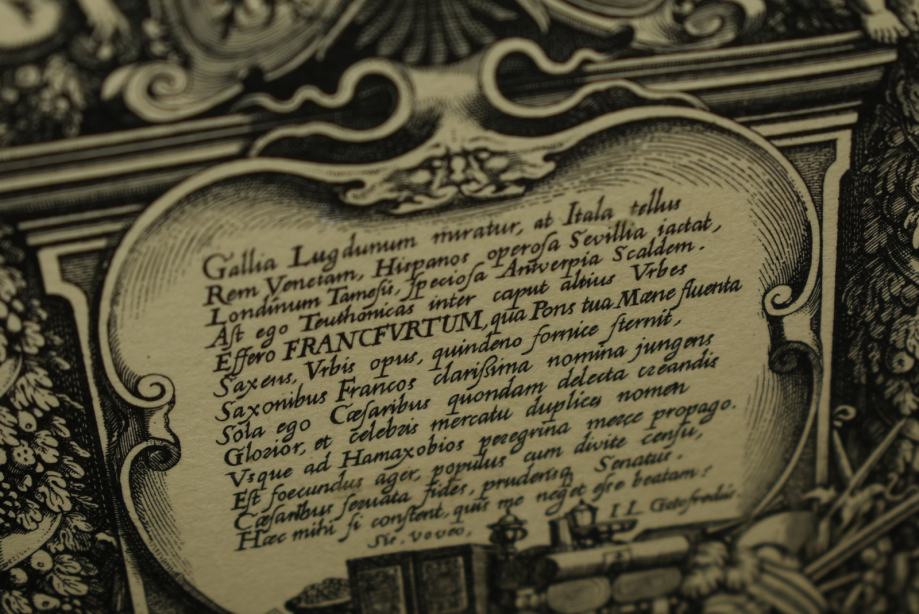 Gallia Lugdunum miratur, at Itala tellus
Rem Venetam, Hispanos operoſa Sevillia iactat,
Londinum Tameſis, ſpecioſa Antverpia Scaldem.
Aſt ego Teuthonicas inter caput altius Vrbes
Effero FRANCFVRTUM, qua Pons tua Mœne fluenta
Saxeus, Vrbis opus, quindeno fornice ſternit,
Saxonibus Francos clariſsima nomina jungens
Sola ego Cæſaribus quondam delecta creandis
Glorior, et celebris mercatu duplices nomen
Vsque ad Hamaxobios peregrina merce propago.
Eſt foecundus ager, populus cum divite cenſu,
Cæſaribus ſeruata fides, prudensq Senatus.
Hæc mihi ſi conſtent, quis me neget eſse beatam?
Sic. voveo,